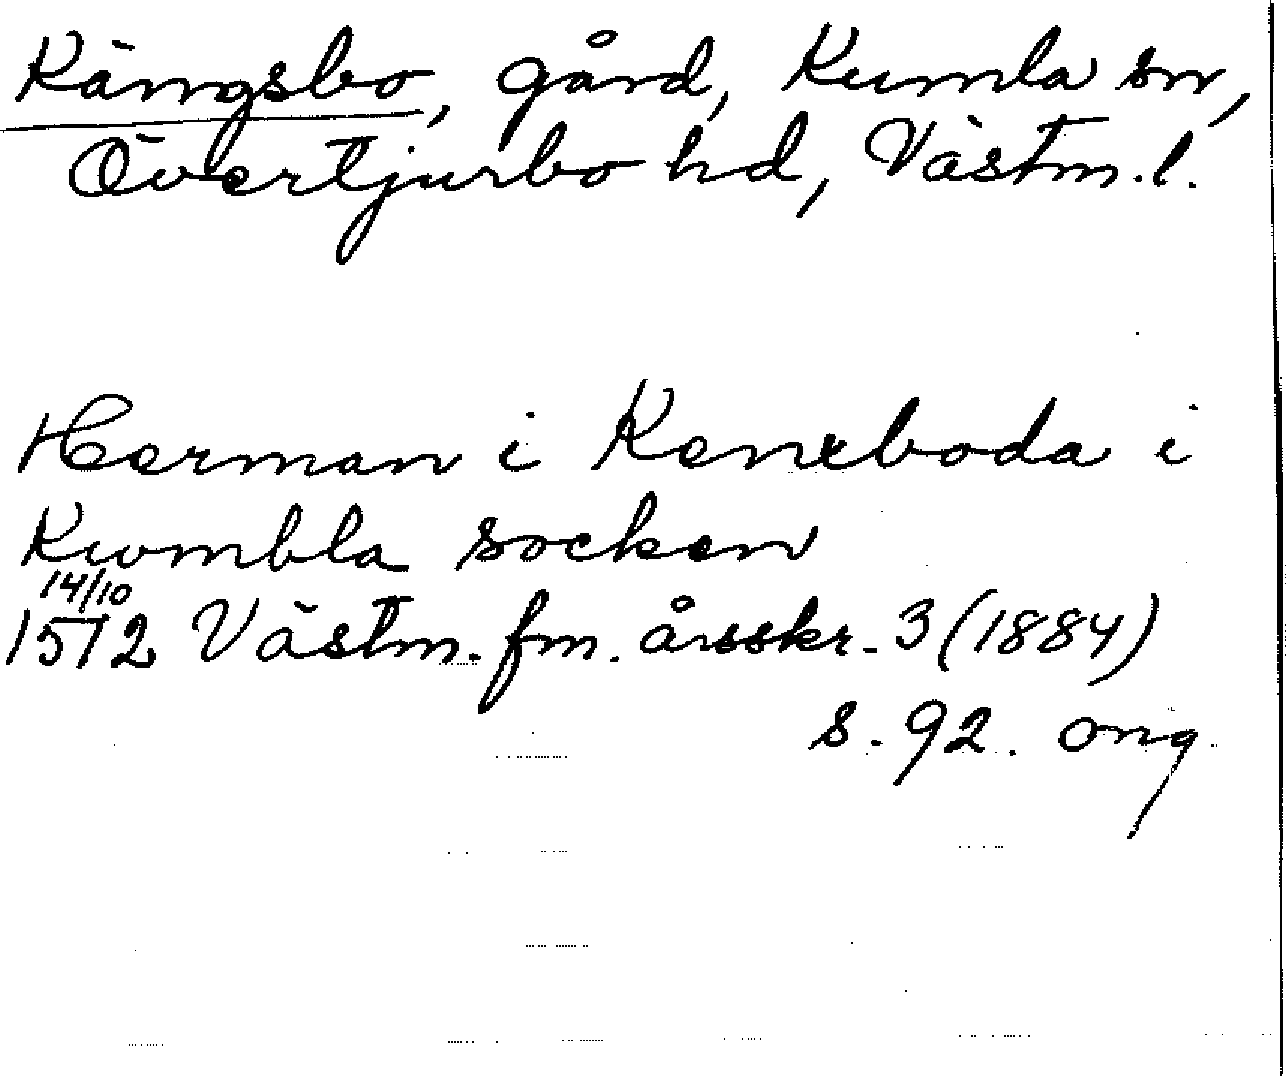 Kängsbo, gård, Kumla sn,
Övertjurbo hd, Västm.l.
Herman i Kenxboda i
Kwmbla socken
14/10
1572 Västm. fm. årsskr. 3 (1884)
s. 92. ong